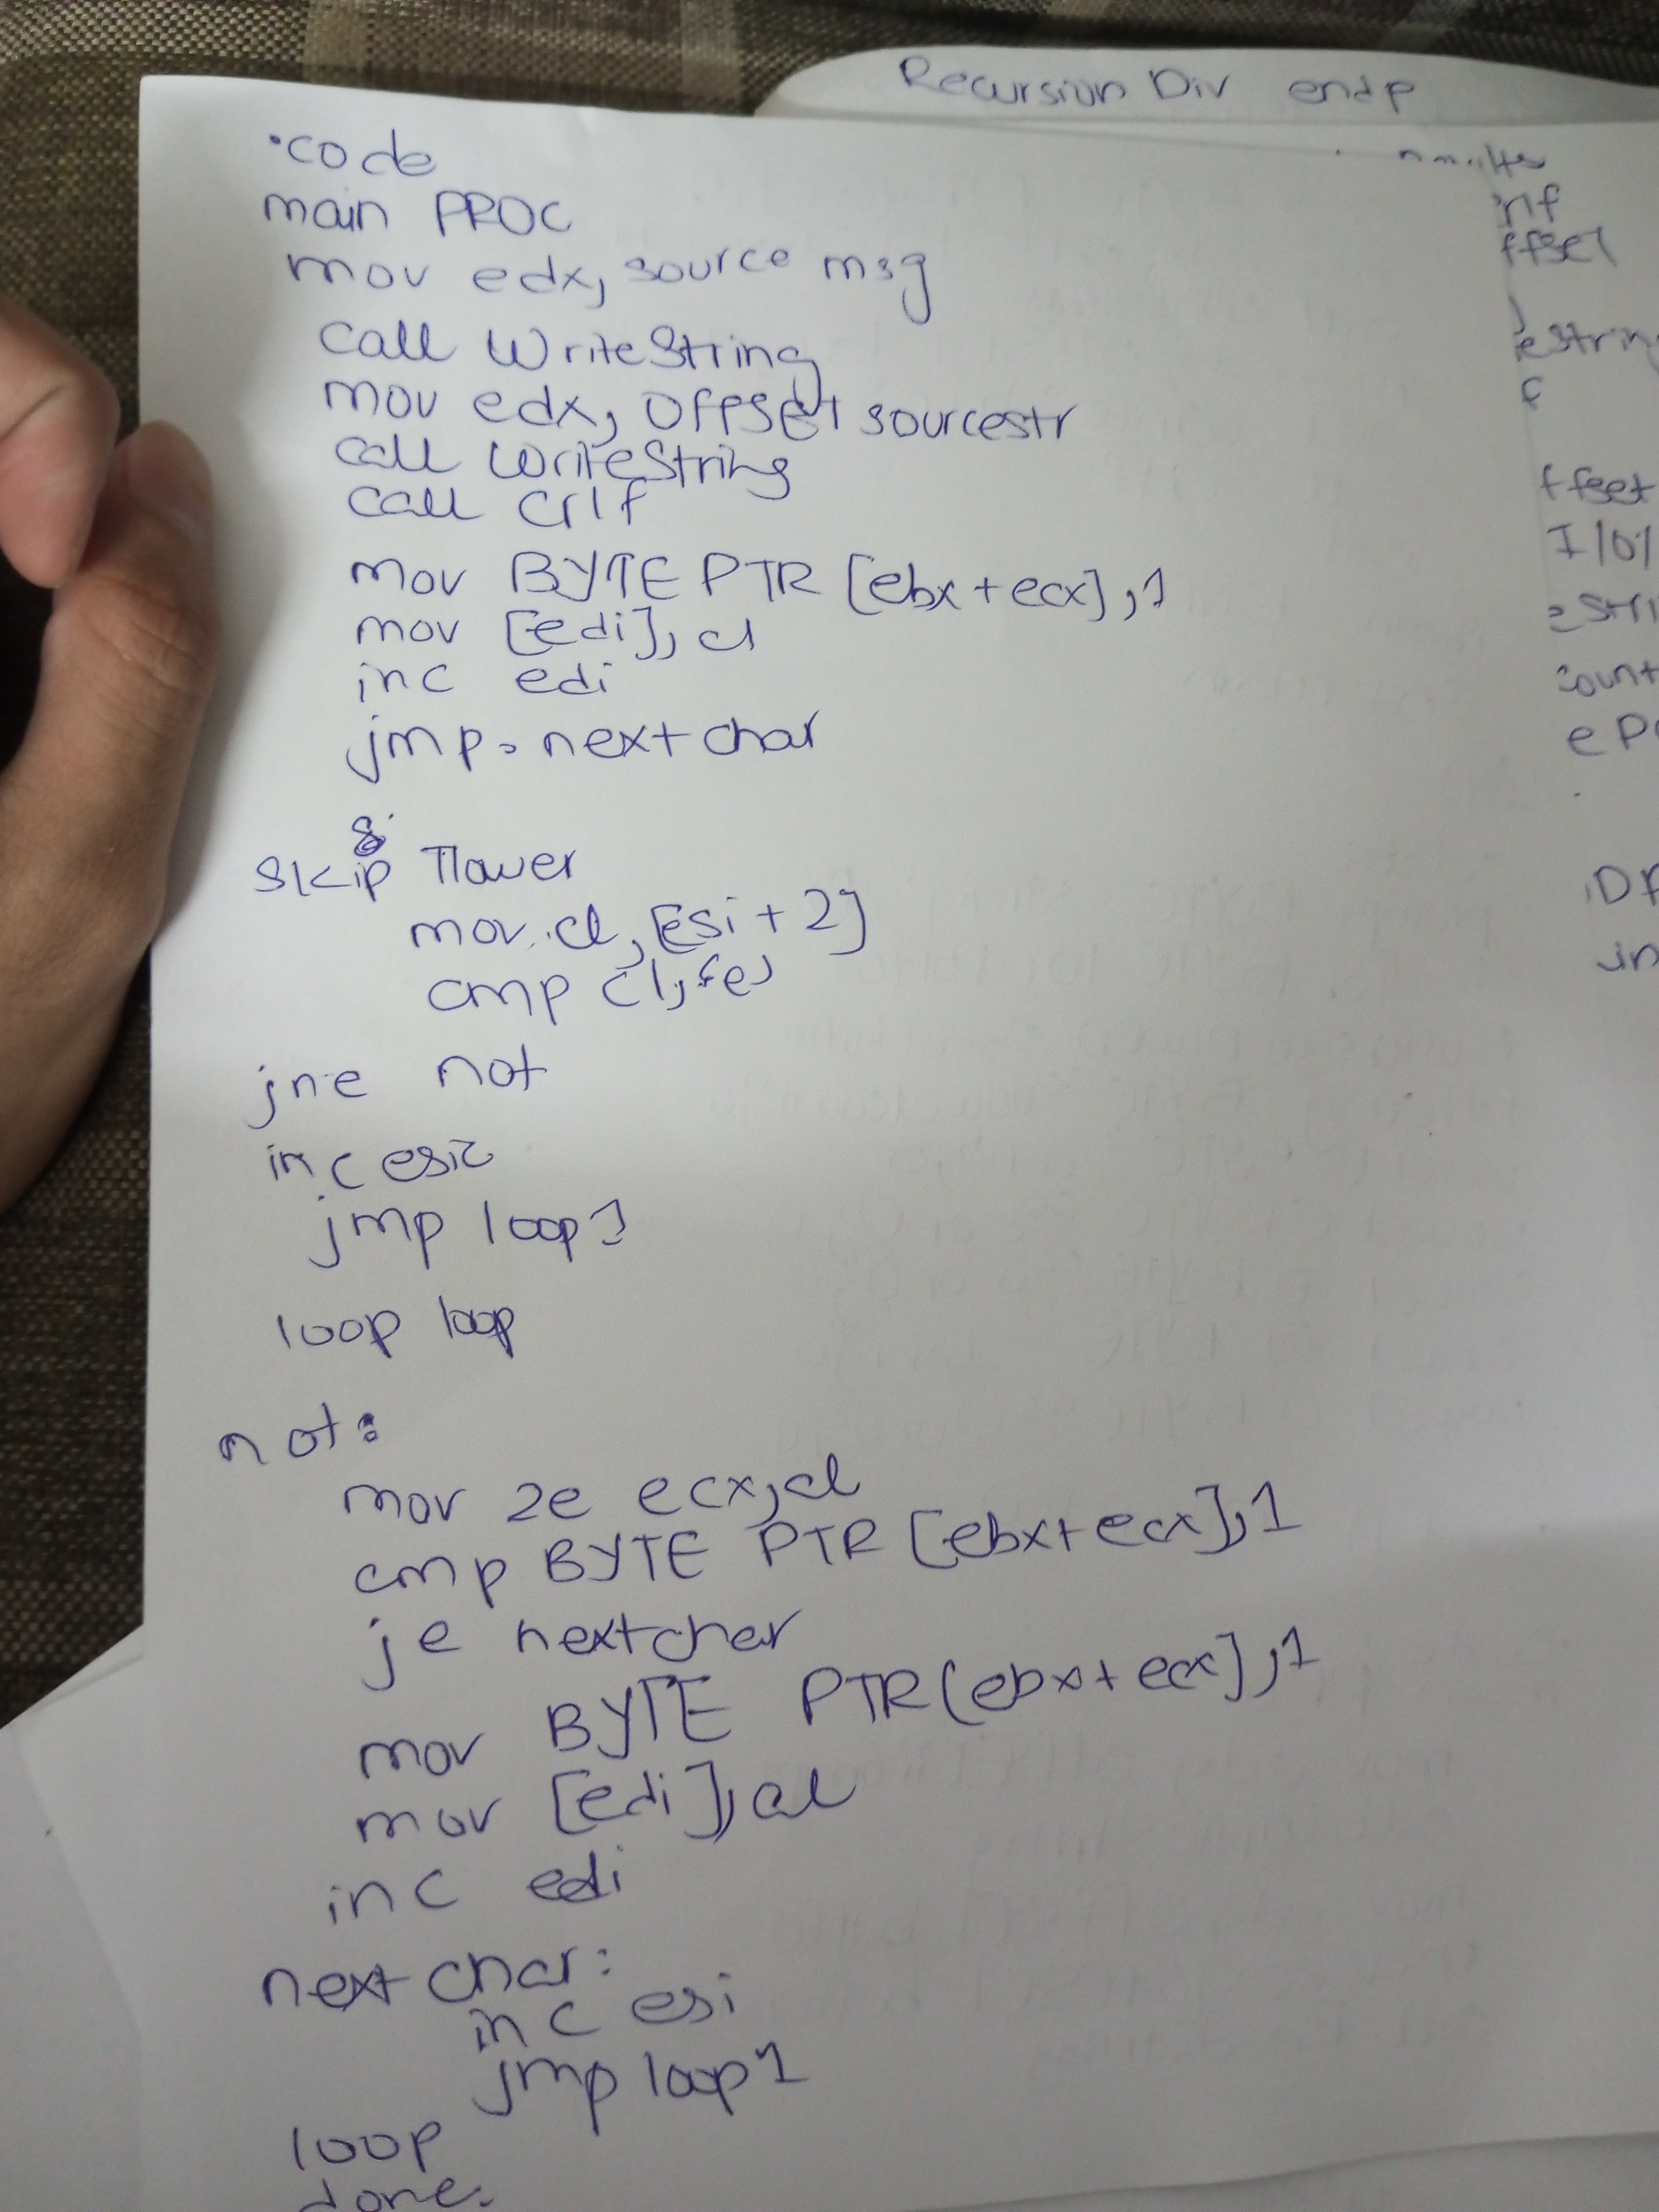 Recursion Div endp
.code
main PROC
mov edx, source msg
call WriteString
mov edx, OFFSET sourcestr
call WriteString
call Crlf
mov BYTE PTR [ebx+ecx],1
mov [edi], cl
inc edi
jmp next char
skip
mov cl, [esi+2]
cmp cl, 'e'
jne not
inc esi
jmp loop1
loop loop
not:
mov ecx, cl
cmp BYTE PTR [ebx+ecx],1
je nextchar
mov BYTE PTR [ebx+ecx],1
mov [edi], al
inc edi
next char:
inc esi
jmp loop1
loop
done:
ffset
estring
f
ffset